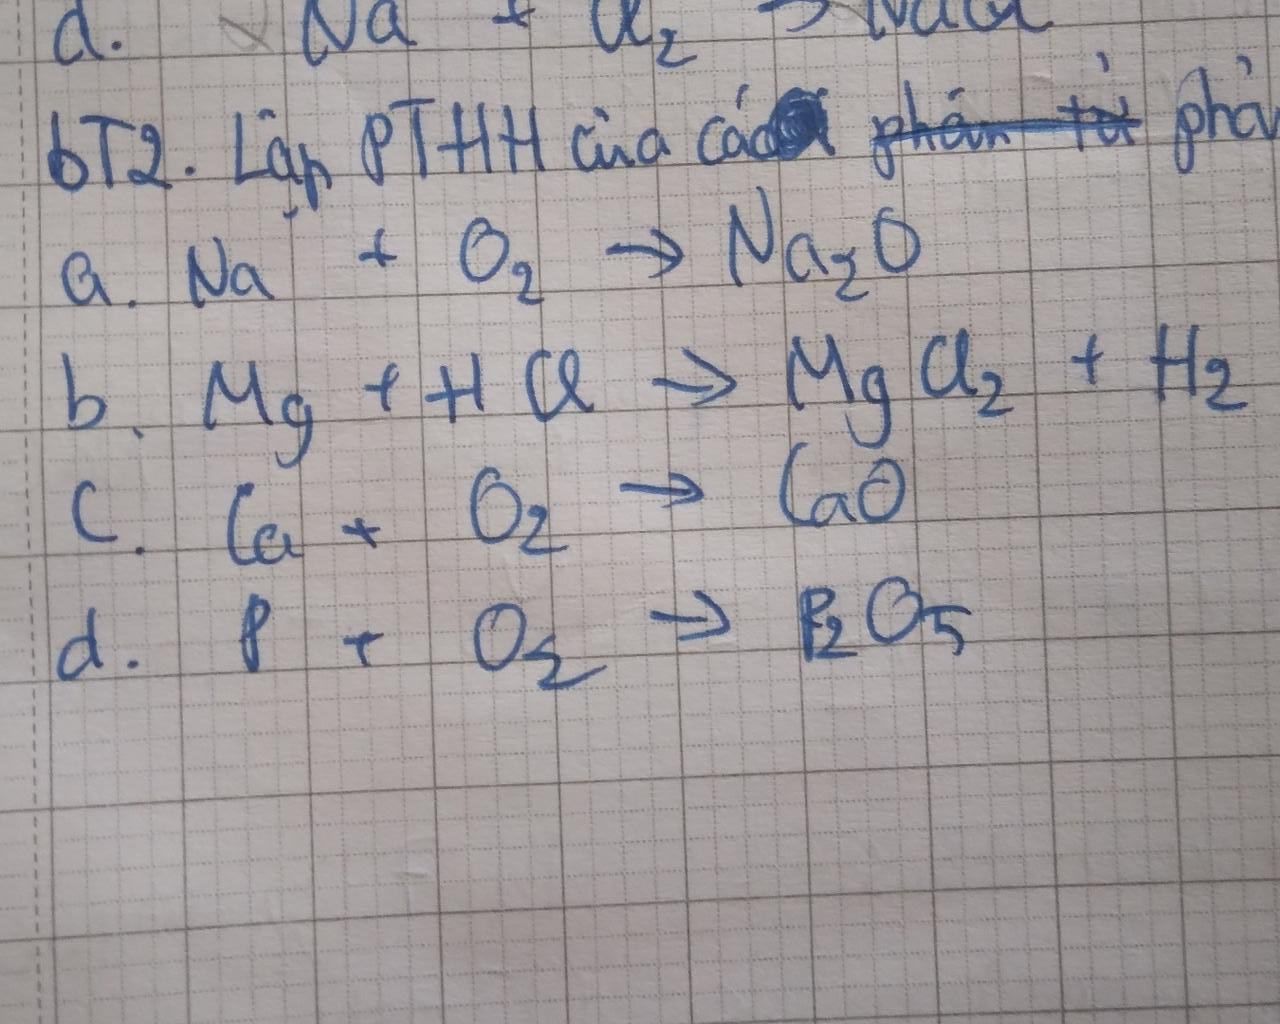 d. Na + Cl₂ → NaCl
bT2. Lập PTHH của các phân tử phả
a. Na + O₂ → Na₂O
b. Mg + HCl → MgCl₂ + H₂
c. Ca + O₂ → CaO
d. P + O₂ → P₂O₅